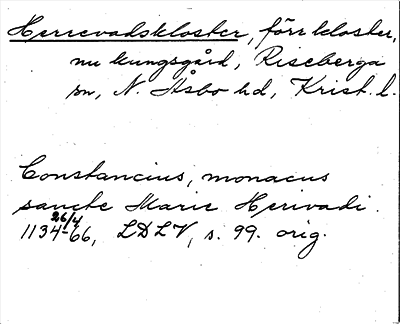 Herrevadskloster, förr kloster,
nu kungsgård, Riseberga
sn, N. Åsbo hd, Krist. l.
Constancius, monacus
sancte Marie Herivadi.
26/4
1134-66, LDLV, s. 99. orig.